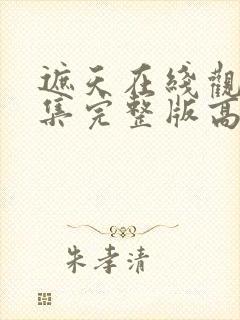 遮天在綫觀
集完整版高
朱孝清